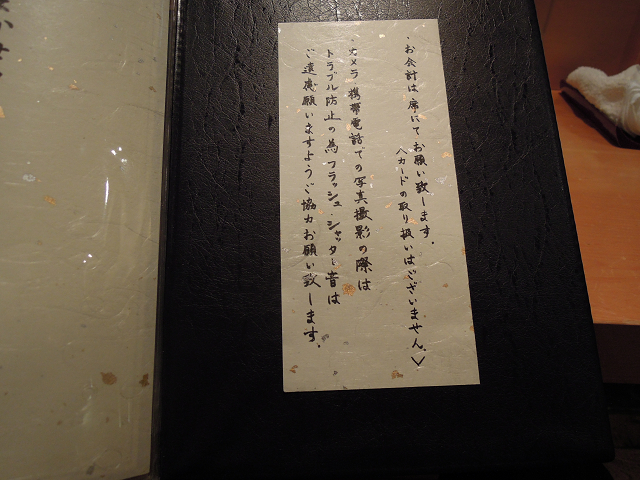 ・お会計は席にてお願い致します。
〈カードの取り扱いはございません。〉
・カメラ、携帯電話での写真撮影の際は
トラブル防止の為フラッシュ・シャッター音は
ご遠慮願いますようご協力お願い致します。